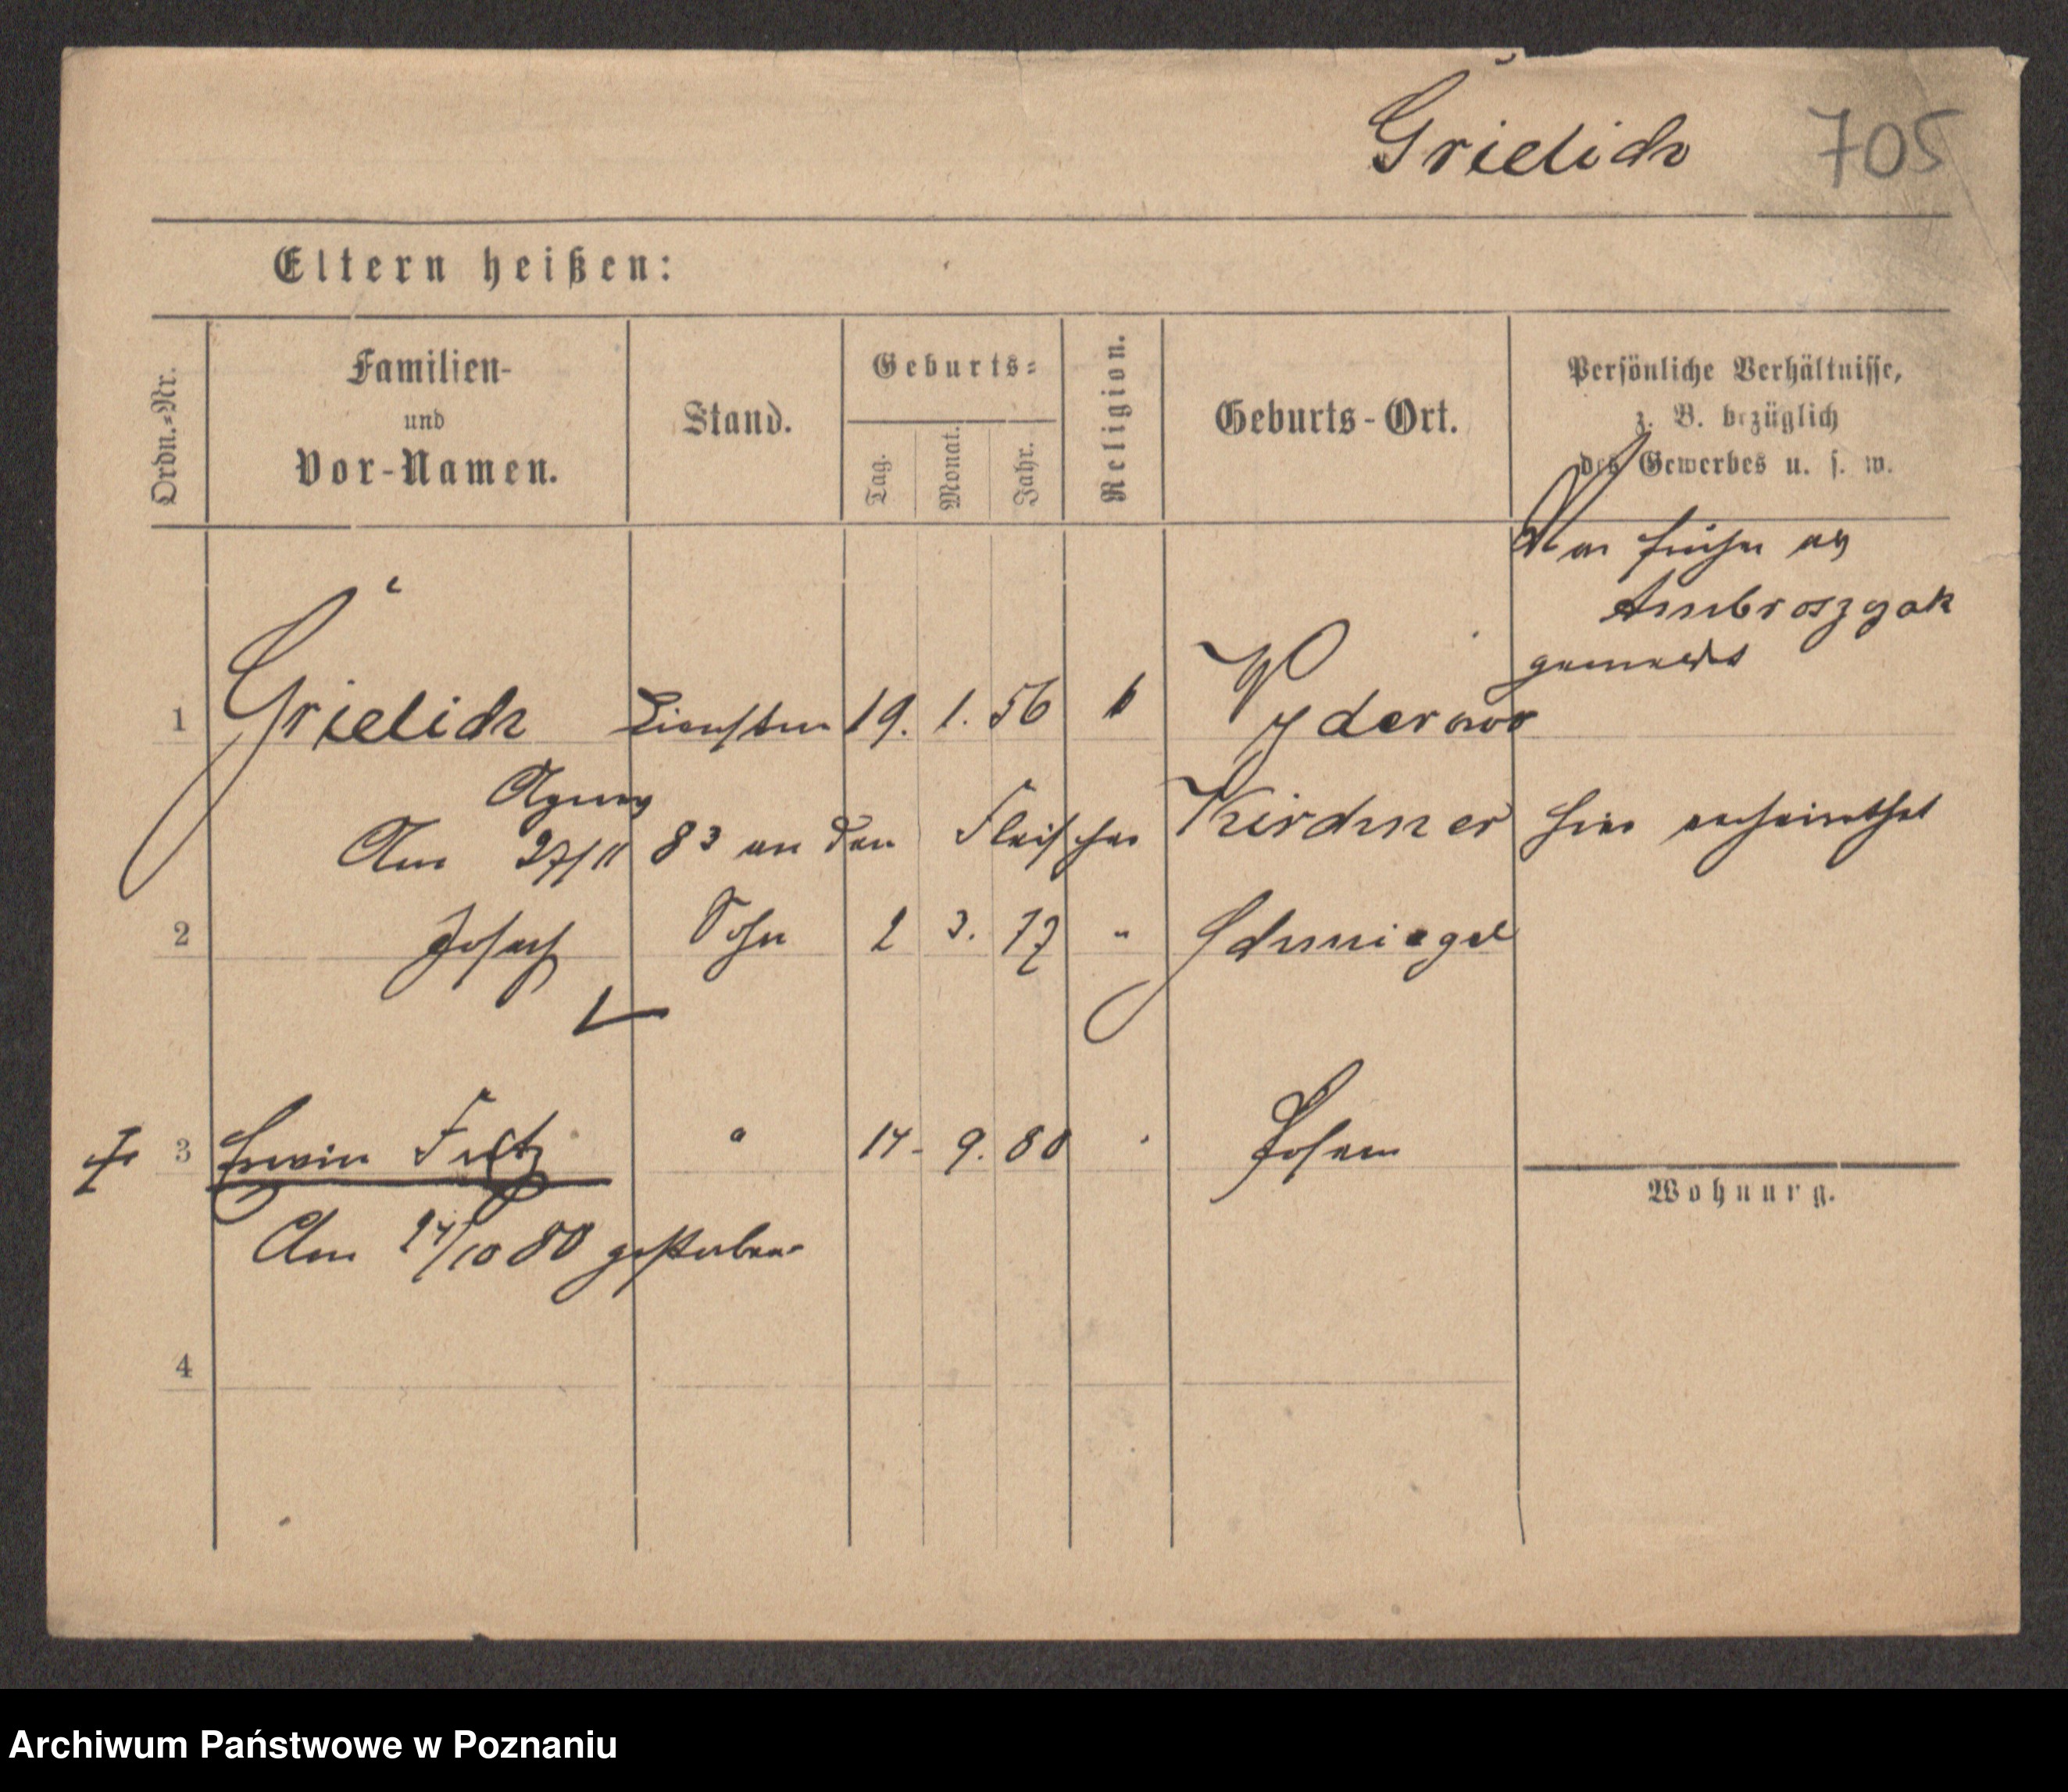 Grielich 705
Eltern heißen:
Ordn.-Nr.
Familien-
und
Vor-Namen.
Stand.
Geburts-
Tag.
Monat.
Jahr.
Religion.
Geburts-Ort.
Persönliche Verhältnisse,
z. B. bezüglich
des Gewerbes u. s. w.
War früher als
Ambroszyak
gemeldet
1 Grielich 19. 1. 56 k
Agnes
Am 27/11 83 an den Fleischer Kirchner hier verheirathet
2 Josef Sohn 2 3. 77 " Schmiegel
3 Erwin Fritz " 14. 9. 80 " Posen
Wohnung.
Am 24/10 80 gestorben
4
Archiwum Państwowe w Poznaniu